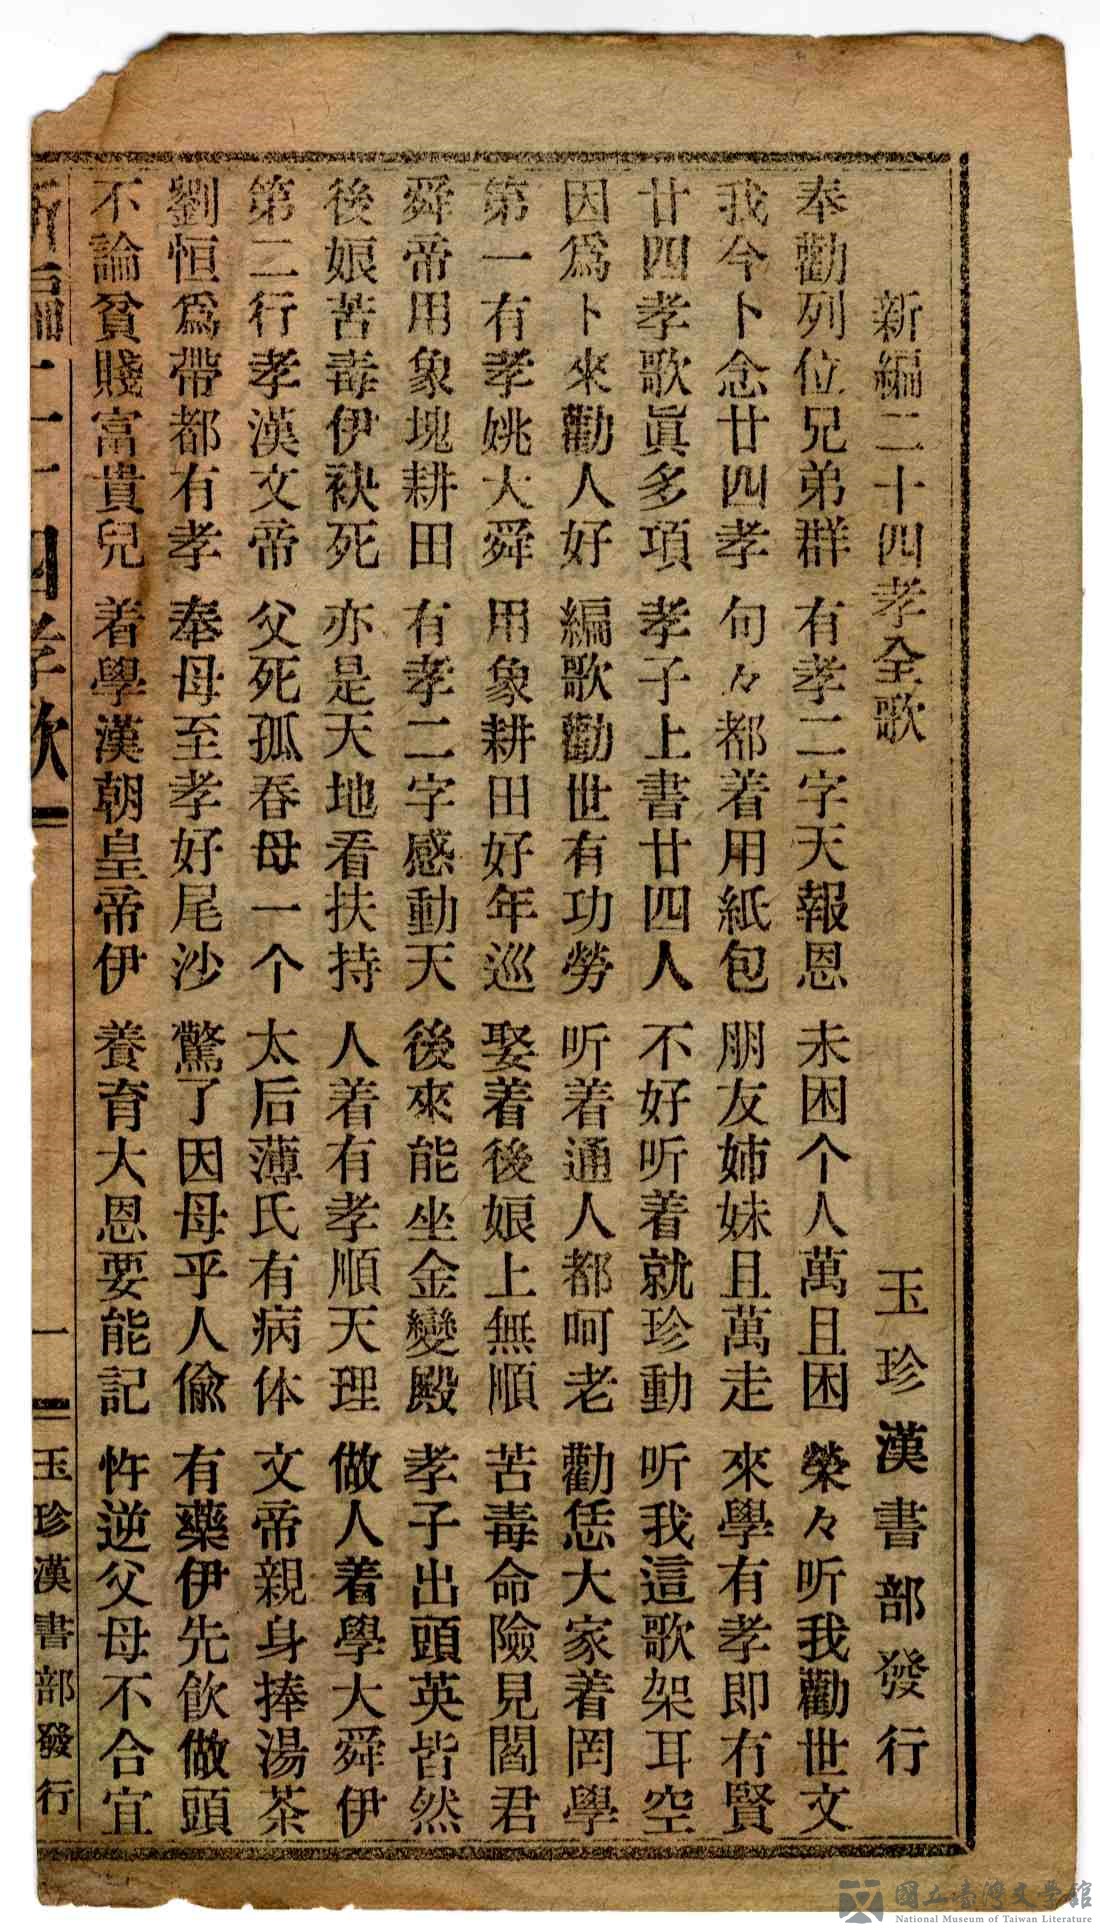 新編二十四孝全歌 玉珍漢書部發行
奉勸列位兄弟群 有孝二字天報恩 未困个人萬且困 榮々听我勸世文
我今卜念廿四孝 句々都着用紙包 朋友姉妹且萬走 來學有孝即有賢
廿四孝歌眞多項 孝子上書廿四人 不好听着就珍動 听我這歌架耳空
因爲卜來勸人好 編歌勸世有功勞 听着通人都呵老 勸恁大家着罔學
第一有孝姚大舜 用象耕田好年巡 娶着後娘上無順 苦毒命險見閻君
舜帝用象塊耕田 有孝二字感動天 後來能坐金變殿 孝子出頭英皆然
後娘苦毒伊袂死 亦是天地看扶持 人着有孝順天理 做人着學大舜伊
第二行孝漢文帝 父死孤春母一个 太后薄氏有病体 文帝親身捧湯茶
劉恒爲帶都有孝 奉母至孝好尾沙 驚了因母乎人偸 有藥伊先飲做頭
不論貧賤富貴兒 着學漢朝皇帝伊 養育大恩要能記 忤逆父母不合宜
新編二十四孝歌 一 玉珍漢書部發行
國立臺灣文學館
National Museum of Taiwan Literature